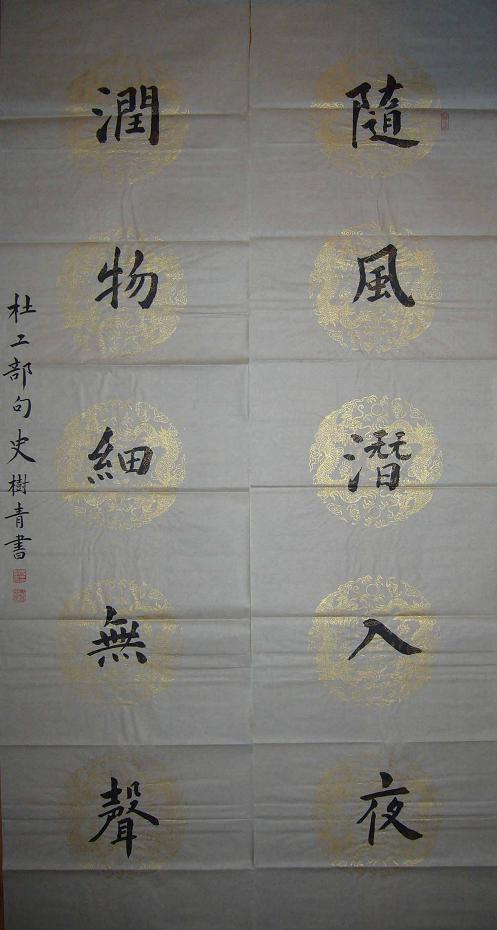 隨風潛入夜
潤物細無聲
杜工部句史樹青書